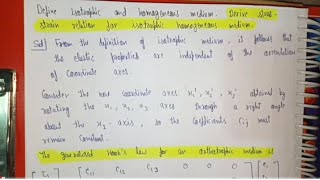 Define isotrophic and homogeneous medium. Derive stress-
strain relation for isotrophic homogeneous medium.
Sol) From the definition of isotrophic medium, it follows that
the elastic properties are independent of the orientation
of coordinate axes.
Consider the new coordinate axes x₁' x₂' x₃' obtained by
rotating the x₁, x₂, x₃ axes through a right angle
about the x₁ - axis, so the coefficients Cij must
remain constant.
The generalised Hook's law for an orthotrophic medium is
C₁₁ C₁₂ C₁₃ 0 0 0 e₁